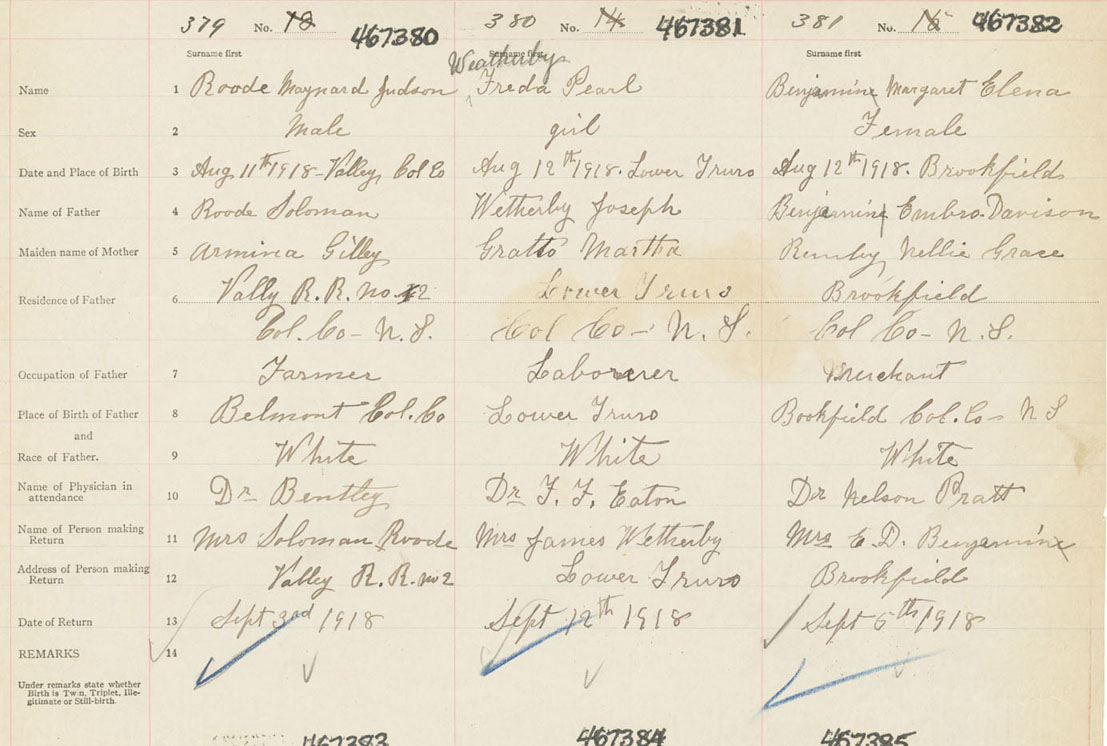 379 No. 13 467380 380 No. 14 467381 381 No. 15 467382
Surname first Surname first Surname first
Weatherby
Name 1 Roode Maynard Judson Freda Pearl Benjamine Margaret Elena
Sex 2 Male girl Female
Date and Place of Birth 3 Aug 11th 1918 - Valley, Col Co Aug 12th 1918. Lower Truro Aug 12th 1918. Brookfield
Name of Father 4 Roode Soloman Wetherby Joseph Benjamine Embro. Davison
Maiden name of Mother 5 Armina Gilley Gratto Martha Nellie Grace
Residence of Father 6 Vally R. R. no 2 Lower Truro Brookfield
Col. Co - N. S. Col Co - N. S. Col Co - N. S.
Occupation of Father 7 Farmer Laborerer Merchant
Place of Birth of Father 8 Belmont Col. Co Lower Truro Bookfield Col. Co - N S
and
Race of Father. 9 White White White
Name of Physician in
attendance 10 Dr Bentley Dr F. F. Eaton Dr Nelson Pratt
Name of Person making
Return 11 Mrs Soloman Roode Mrs James Wetherby Mrs E. D. Benjamine
Address of Person making
Return 12 Valley R. R. no 2 Lower Truro Brookfield
Date of Return 13 Sept 3rd 1918 Sept 12th 1918 Sept 5th 1918
REMARKS 14
Under remarks state whether
Birth is Twin, Triplet, Ille-
gitimate or Still-birth.
467383 467384 467385